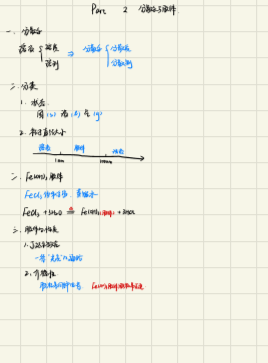 Part 2 分散系与胶体
一、分散系
溶液 { 溶质 溶剂 ⇒ 分散系 { 分散质 分散剂
二、分类
1. 状态
固(s) 液(l) 气(g)
2. 粒子直径大小
溶液 胶体 浊液
1nm 100nm
二、Fe(OH)3 胶体
FeCl3
FeCl3 + 3H2O △ Fe(OH)3(胶体) + 3HCl
三、胶体的性质
1. 丁达尔效应
一条"光亮"的通路
2. 介稳性
Fe(OH)3胶体